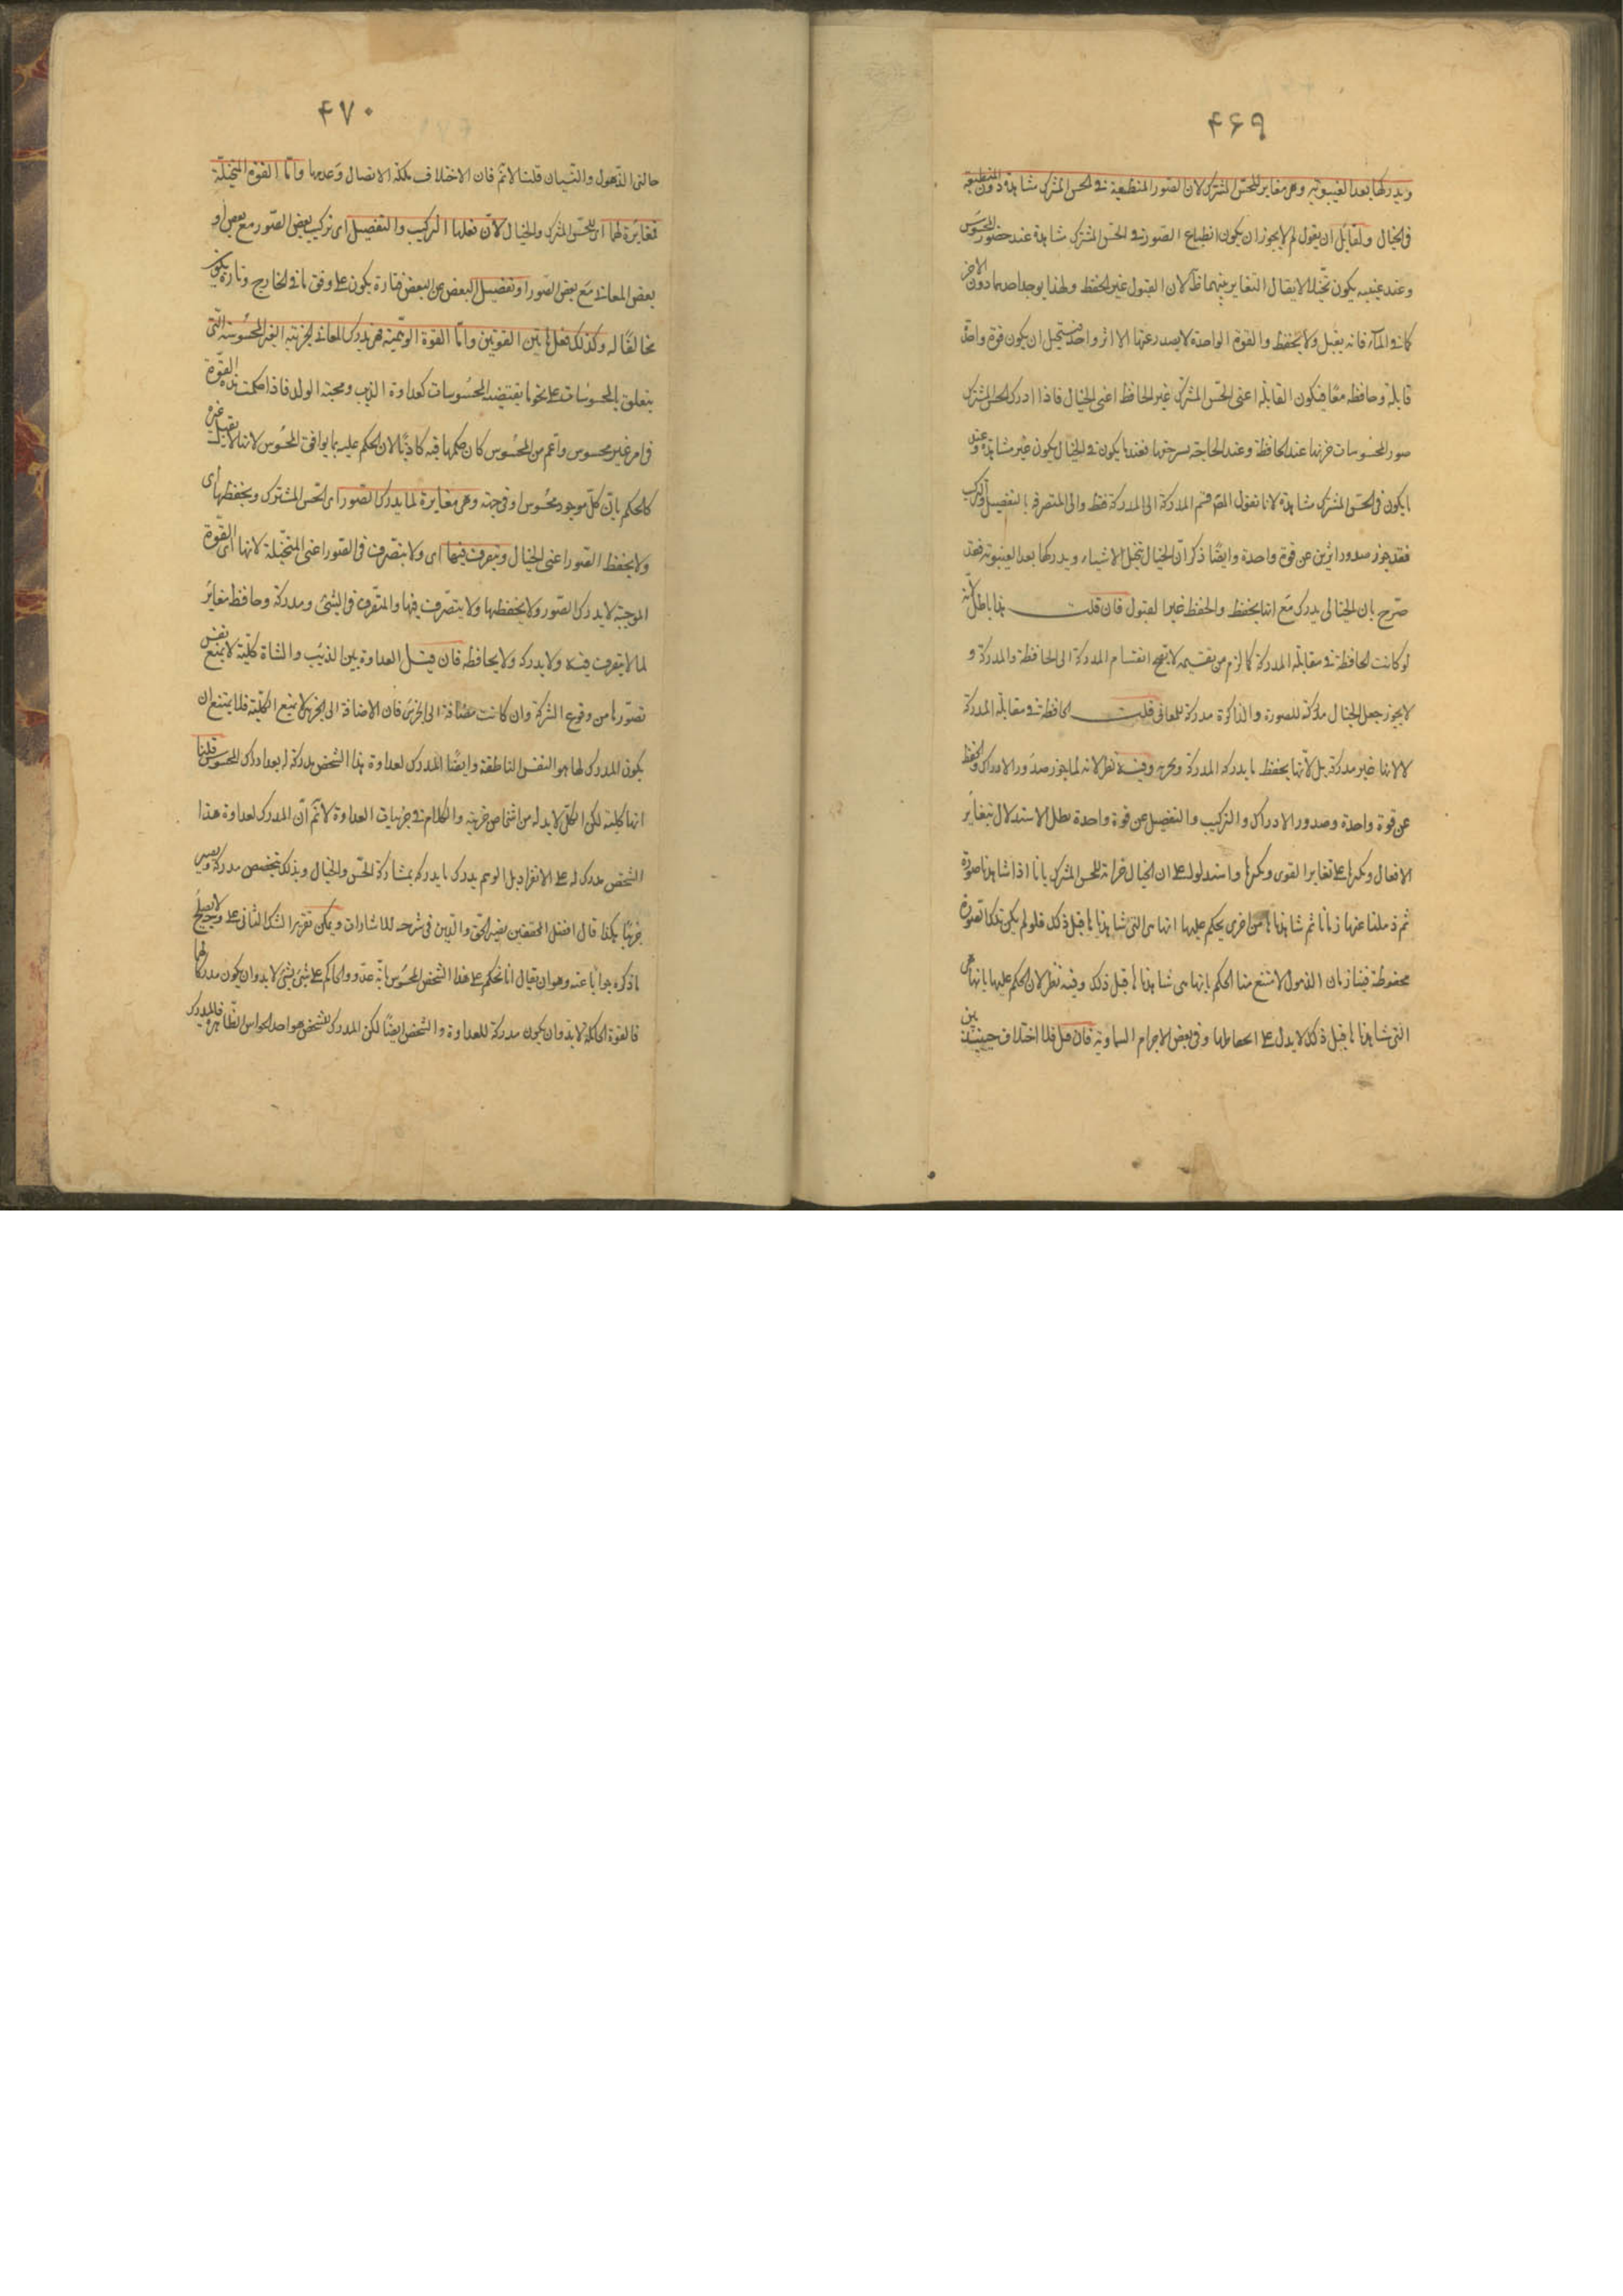 ۴۶۹
ويدركها بعد الغيبوبة وهى مغاير للحس المشترك لان الصور المنطبعة فى الحس المشترك مشاهدة دون المنطبعة
فى الخيال ولقائل ان يقول لم لا يجوز ان يكون انطباع الصور فى الحس المشترك مشاهدة عند حضور المحسوس
وعند غيبته يكون تخيلا لا يقال التغاير بينهما ظ لان القبول غير الحفظ ولهذا يوجد احدهما دون الاخر
كما فى الماء فانه يقبل ولا يحفظ والقوة الواحدة لا يصدر عنها الا اثر واحد فيستحيل ان يكون قوة واحدة
قابلة وحافظه معًا فيكون القابلة اعنى الحس المشترك غير الحافظ اعنى الخيال فاذا ادرك الحس المشترك
صور المحسوسات خزنها عند الحافظة وعند الحاجة يسرجعها فعندما يكون فى الخيال يكون غير مشاهدة وعند
ما يكون فى الحس المشترك مشاهدة لانا نقول المص قسم المدركة الى المدركة فقط والى المتصرفه بالتفصيل والتركيب
فقد جوز صدور اثرين عن قوة واحدة وايضًا ذكر ان الخيال تتخيل الاشياء ويدركها بعد الغيبوبة فقد
صرح بان الخيالى يدرك مع انها يحفظ والحفظ غير القبول فان قلت هذا باطل لانه
لو كانت الحافظة فى مقابلة المدركة كما لزم من تقسيمه لا يتجه انقسام المدركة الى الحافظة والمدركة و
لا يجوز جعل الخيال مدركة للصورة والذاكرة مدركة للمعانى قلت الحافظة فى مقابلة المدركة
لا لانها غير مدركة بل لانها يحفظ ما يدركه المدركة وفيه نظر لانه لما يجوز صدور الادراك والحفظ
عن قوة واحدة وصدور الادراك والتركيب والتفصيل عن قوة واحدة بطل الاستدلال بتغاير
الافعال وتكثرها على تغاير القوى وتكثرها واستدلوا على ان الخيال خزانة للحس المشترك بانا اذا شاهدنا صورة
ثم ذهلنا عنها زمانا ثم شاهدناها مرة اخرى يحكم عليها انها هى التى شاهدناها قبل ذلك فلو لم يكن تلك الصورة
محفوظة فينا زمان الذهول لامتنع منا الحكم بانها هى شاهدناها قبل ذلك وفيه نظر لان الحكم عليها بانها هى
التى شاهدناها قبل ذلك لا يدل على انحفاظها وفى بعض الاجرام السماوية فان قيل فلا اختلاف حينئذ بين
۴۷۰
حالتى الذهول والنسيان قلنا لا نم فان الاختلاف بملكة الاتصال وعدمها واما القوة المتخيلة
فمغايرة لهما اى للحس المشترك والخيال لان فعلها التركيب والتفصيل اى تركيب بعض الصور مع بعض او
بعض المعانى مع بعض الصور او تفصيل البعض عن البعض فتارة يكون على وفق ما فى الخارج وتارة يكون
مخالفًا له وكذلك فعل هاتين القوتين واما القوة الوهمية فهى يدرك المعانى الجزئية الغير المحسوسة التى
يتعلق بالمحسوسات على نحو ما يقتضيه المحسوسات كعداوة الذيب ومحبة الولد فاذا حكمت هذه القوة
فى امر غير محسوس واعم من المحسوس كان حكمها فيه كاذبًا لان الحكم عليه بما يوافق المحسوس لانها لا يقبل غيره
كالحكم بان كل موجود محسوس او فى جهة وهى مغايرة لما يدرك الصور اى الحس المشترك ويحفظها اى
ولا يحفظ الصور اعنى الخيال ويتصرف فيهما اى ولا يتصرف فى الصور اعنى المتخيلة لانها اى القوة
الوهمية لا يدرك الصور ولا يحفظها ولا يتصرف فيها والمتصرف فى الشئ ومدركه وحافظه مغاير
لما لا يتصرف فيه ولا يدركه ولا يحافظه فان قيل العداوة بين الذئب والشاة كلية لا يمنع نفس
تصورها من وقوع الشركة وان كانت مضافة الى الجزئى فان الاضافة الى الجزئى لا يمنع الكلية فلا يمتنع ان
يكون المدرك لها هو النفس الناطقة وايضًا المدرك لعداوة هذا الشخص مدركة له بعد ادراك المحسوس قلنا
انها كلية لكن الكل لا بد له من اشخاص جزئية والكلام فى جزئيات العداوة لا نم ان المدرك لعداوة هذا
الشخص مدرك له على الانفراد بل الوهم يدرك ما يدركه بمشاركة الحس والخيال وبذلك يتخصص مدركه ويصير
جزئيًا هكذا قال افضل المحققين نصير الحق والدين فى شرحه للاشارات ويمكن تقرير الشك الثانى على وجه لا يصلح
ما ذكره جوابًا عنه وهو ان يقال انا نحكم على هذا الشخص المحسوس بانه عدو والحاكم على شئ بشئ لا بد وان يكون مدركا لهما
فالقوة الحاكمة لا بد وان يكون مدركة للعداوة والشخص ايضًا لكن المدرك للشخص هو احد الحواس الظاهرة فالمدرك